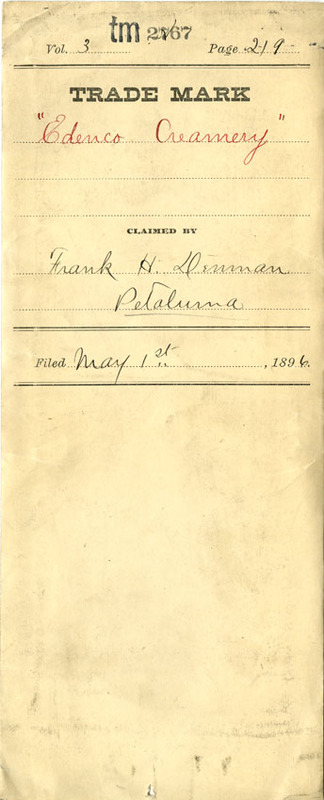 tm 2867
Vol. 3 Page 219
TRADE MARK
"Edenco Creamery"
CLAIMED BY
Frank H. Denman
Petaluma
Filed May 1st, 1896.